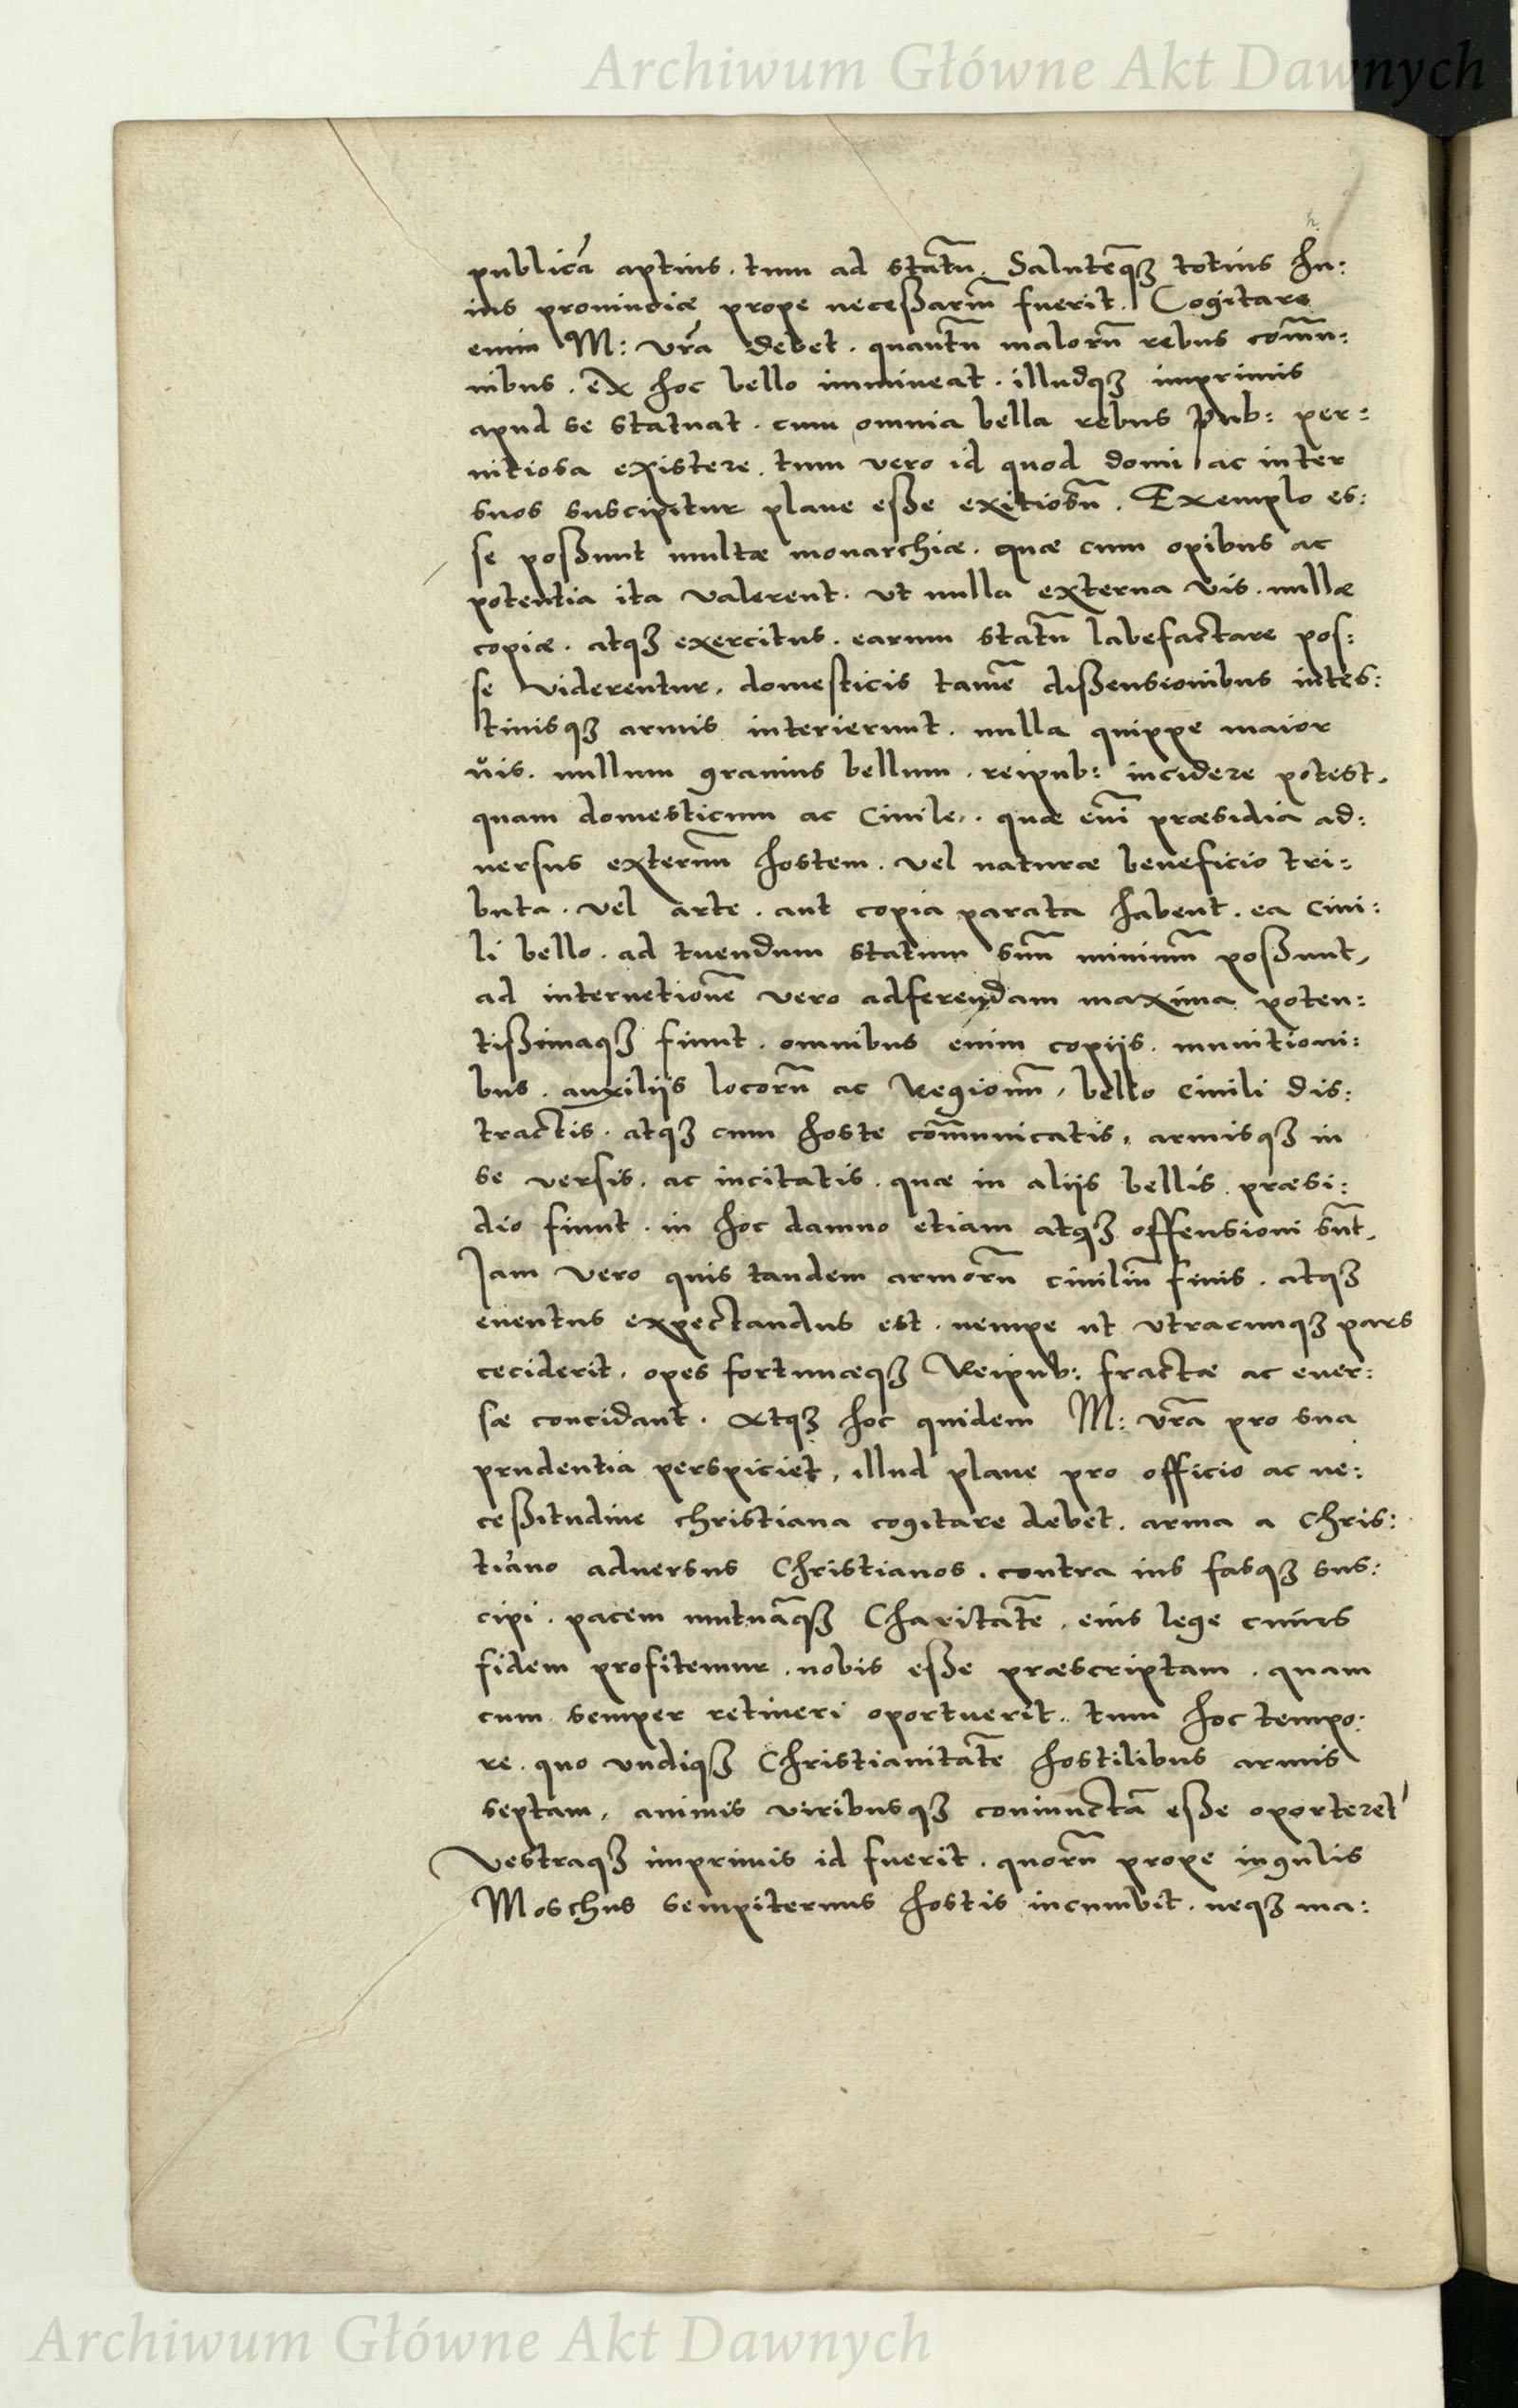 Archiwum Główne Akt Dawnych
publicā aptius. tum ad statū. Salutēqꝫ totius hu:
ius prouinciæ prope necessariū fuerit. Cogitare
enim M: vrã debet. quantū malorū rebus com̄u:
nibus. ex hoc bello immineat. illudqꝫ imprimis
apud se statuat. cum omnia bella rebus Pub: per:
nitiosa existere. tum vero id quod domi ac inter
suos suscipitur plane esse exitiosū. Exemplo es:
se possunt multæ monarchiæ. quæ cum opibus ac
potentia ita valerent. vt nulla externa vis. nullæ
copiæ. atqꝫ exercitus. earum statū labefactare pos:
se viderentur. domesticis tamē dissensionibus intes:
tinisqꝫ armis interierunt. nulla quippe maior
vis. nullum grauius bellum. reipub: incidere potest.
quam domesticum ac Ciuile. quæ eni̅ præsidia ad:
uersus externū hostem. vel naturæ beneficio tri:
buta. vel arte. aut copia parata habent. ea Ciui:
li bello. ad tuendum statum suū minimū possunt,
ad internetionē vero adferendam maxima poten:
tissimaqꝫ fiunt. omnibus enim copiis. munitioni:
bus. auxiliis locorū ac Regionū, bello Ciuili dis:
tractis. atqꝫ cum hoste com̄unicatis, armisqꝫ in
se versis. ac incitatis. quæ in aliis bellis. præsi:
dio fiunt. in hoc damno etiam atqꝫ offensioni sūt.
Iam vero quis tandem armorū ciuiliū finis. atqꝫ
euentus expectandus est. nempe ut vtracunqꝫ pars
ceciderit. opes fortunæqꝫ Reipub: fractæ ac euer:
sæ concidant. Atqꝫ hoc quidem M: vrã pro sua
prudentia perspiciet, illud plane pro officio ac ne:
cessitudine christiana cogitare debet. arma a Chris:
tiano aduersus Christianos. contra ius fasqꝫ sus:
cipi. pacem mutuāqꝫ Charitatē. eius lege cuius
fidem profitemur. nobis esse præscriptam. quam
cum semper retineri oportuerit. tum hoc tempo:
re. quo vndiqꝫ Christianitatē hostilibus armis
septam, animis viribusqꝫ coniunctā esse oporteret
Vestraqꝫ imprimis id fuerit. quorū prope iugulis
Moschus sempiternus hostis incumbit. neqꝫ ma:
Archiwum Główne Akt Dawnych